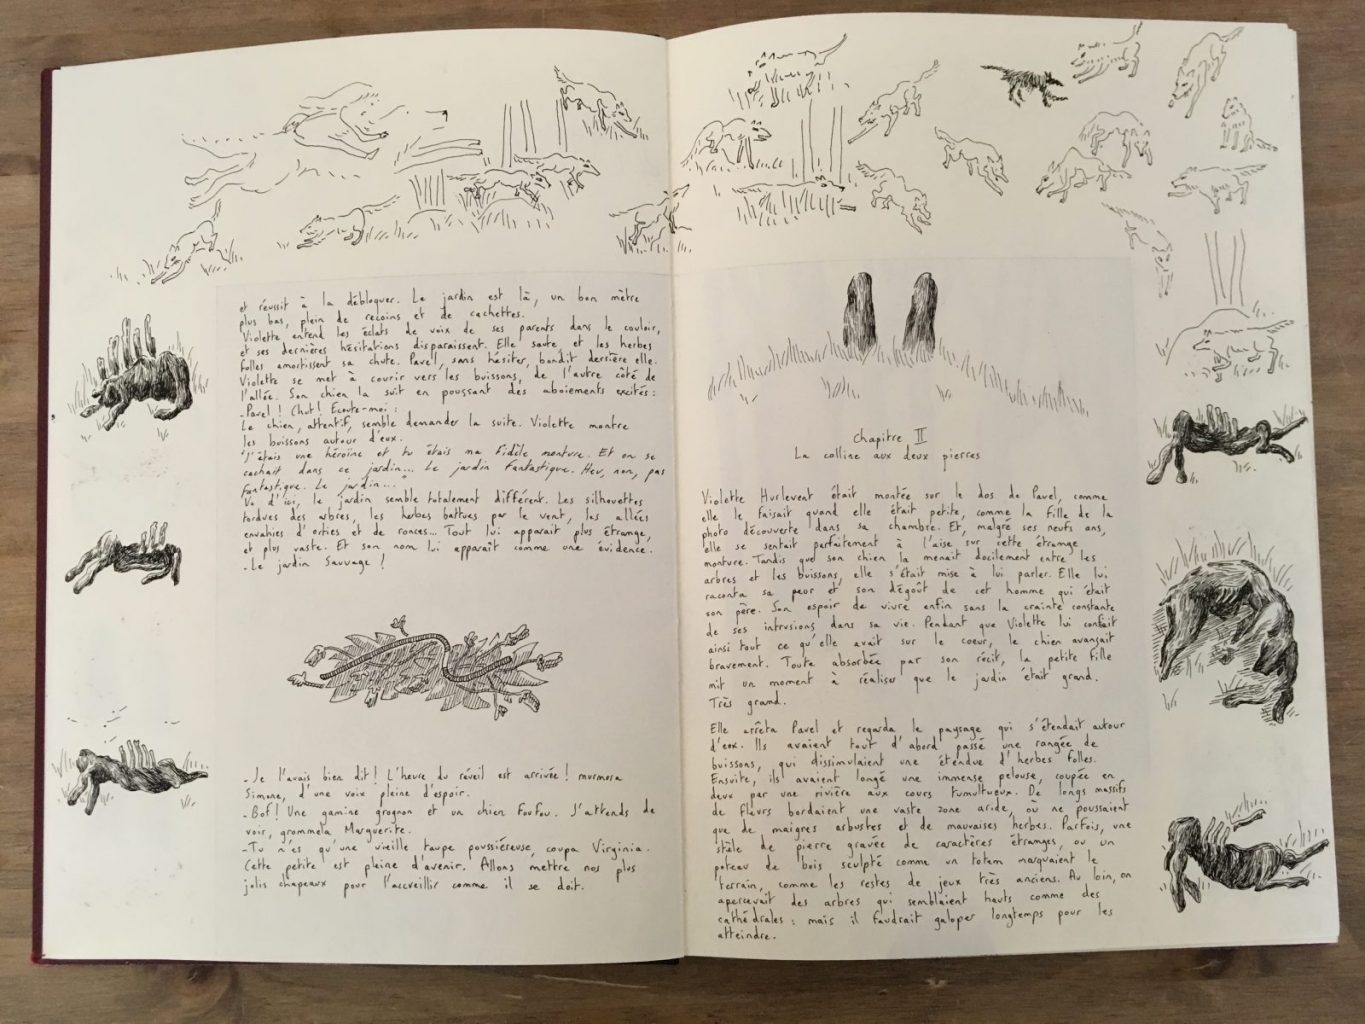 et réussit à la débloquer. Le jardin est là, un bon mètre
plus bas, plein de recoins et de cachettes.
Violette entend les éclats de voix de ses parents dans le couloir,
et ses dernières hésitations disparaissent. Elle saute, et les herbes
folles amortissent sa chute. Pavel, sans hésiter, bondit derrière elle.
Violette se met à courir vers les buissons, de l'autre côté de
l'allée. Son chien la suit en poussant des aboiements excités :
- Pavel ! Chut ! Ecoute-moi :
Le chien, attentif, semble demander la suite. Violette montre
les buissons autour d'eux.
"J'étais une héroïne et tu étais ma fidèle monture. Et on se
cachait dans ce jardin... Le jardin fantastique. Heu, non, pas
fantastique. Le jardin..."
Vu d'ici, le jardin semble totalement différent. Les silhouettes
tordues des arbres, les herbes battues par le vent, les allées
envahies d'orties et de ronces... Tout lui apparait plus étrange,
et plus vaste. Et son nom lui apparait comme une évidence.
- Le jardin Sauvage !
- Je l'avais bien dit ! L'heure du réveil est arrivée ! murmura
Simone, d'une voix pleine d'espoir.
- Bof ! Une gamine grognon et un chien foufou. J'attends de
voir, grommela Marguerite.
- Tu n'es qu'une vieille taupe poussiéreuse, coupa Virginia.
Cette petite est pleine d'avenir. Allons mettre nos plus
jolis chapeaux pour l'accueillir comme il se doit.
Chapitre II
La colline aux deux pierres
Violette Hurlevent était montée sur le dos de Pavel, comme
elle le faisait quand elle était petite, comme la fille de la
photo découverte dans sa chambre. Et, malgré ses neufs ans,
elle se sentait parfaitement à l'aise sur cette étrange
monture. Tandis que son chien la menait docilement entre les
arbres et les buissons, elle s'était mise à lui parler. Elle lui
raconta sa peur et son dégoût de cet homme qui était
son père. Son espoir de vivre enfin sans la crainte constante
de ses intrusions dans sa vie. Pendant que Violette lui confiait
ainsi tout ce qu'elle avait sur le coeur, le chien avançait
bravement. Toute absorbée par son récit, la petite fille
mit un moment à réaliser que le jardin était grand.
Très grand.
Elle arrêta Pavel et regarda le paysage qui s'étendait autour
d'eux. Ils avaient tout d'abord passé une rangée de
buissons, qui dissimulaient une étendue d'herbes folles.
Ensuite, ils avaient longé une immense pelouse, coupée en
deux par une rivière aux cours tumultueux. De longs massifs
de fleurs bordaient une vaste zone aride, où ne poussaient
que de maigres arbustes et de mauvaises herbes. Parfois, une
stèle de pierre gravée de caractères étranges, ou un
poteau de bois sculpté comme un totem marquaient le
terrain, comme les restes de jeux très anciens. Au loin, on
apercevait des arbres qui semblaient hauts comme des
cathédrales : mais il faudrait galoper longtemps pour les
atteindre.